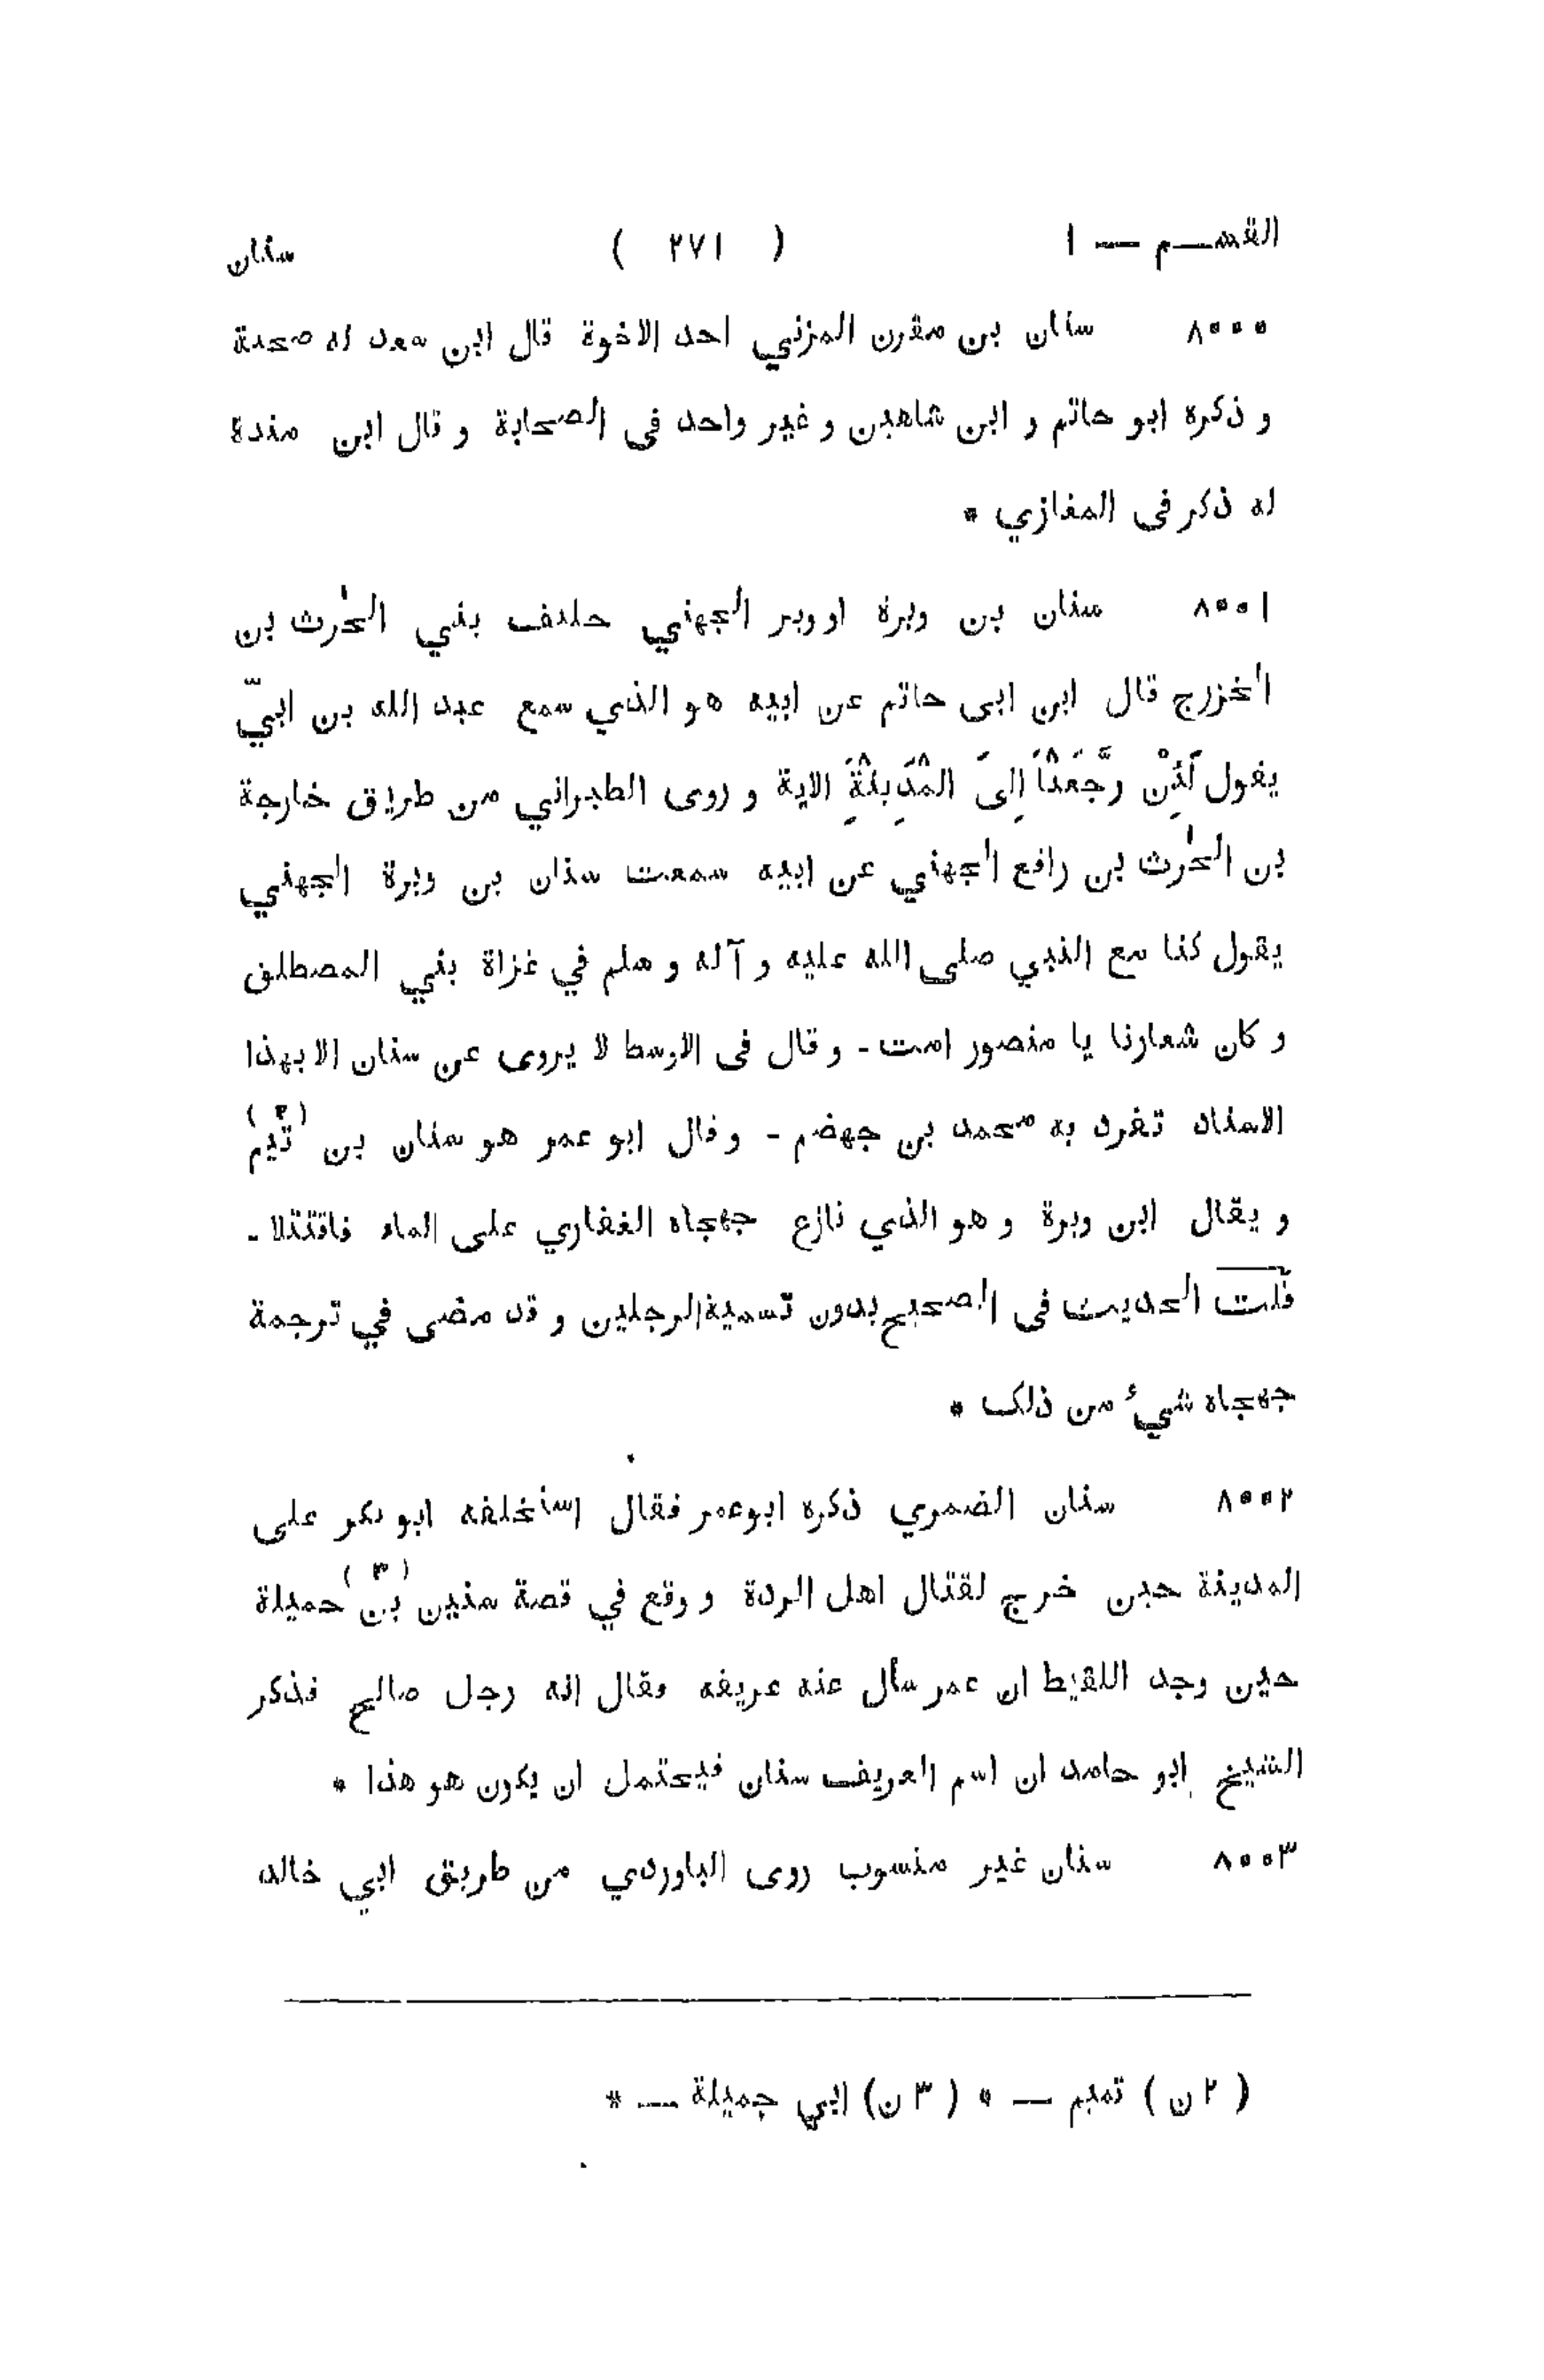 القسم — ١ ( ٢٧١ ) سنان
٨٠٠٠ سنان بن مقرن المزني احد الاخوة قال ابن سعد له صحبة
و ذكره ابو حاتم و ابن شاهين و غير واحد فى الصحابة و قال ابن مندة
له ذكر فى المغازي *
٨٠٠١ سنان بن وبرة او وبر الجهني حليف بني الحٰرث بن
الخزرج قال ابن ابى حاتم عن ابيه هو الذي سمع عبد الله بن ابيّ
يقول لَئِنْ رَّجَعْنَا إِلىَ الْمَدِينَةِ الاية و روى الطبراني من طريق خارجة
بن الحٰرث بن رافع الجهني عن ابيه سمعت سنان بن وبرة الجهني
يقول كنا مع النبي صلى الله عليه و آله و سلم في غزاة بني المصطلق
و كان شعارنا يا منصور امت - و قال فى الاوسط لا يروى عن سنان الا بهذا
الاسناد تفرد به محمد بن جهضم - و قال ابو عمر هو سنان بن تيم (٢)
و يقال ابن وبرة و هو الذي نازع جهجاه الغفاري على الماء فاقتتلا -
قلت الحديث فى الصحيح بدون تسمية الرجلين و قد مضى في ترجمة
جهجاه شيء من ذلك *
٨٠٠٢ سنان الضمري ذكره ابو عمر فقال استخلفه ابو بكر على
المدينة حين خرج لقتال اهل الردة و وقع في قصة سنين بن (٣) حميلة
حين وجد اللقيط ان عمر سأل عنه عريفه فقال انه رجل صالح فذكر
الشيخ ابو حامد ان اسم العريف سنان فيحتمل ان يكون هو هذا *
٨٠٠٣ سنان غير منسوب روى الباوردي من طريق ابي خالد
( ٢ ن ) تميم — * ( ٣ ن ) ابي جميلة — *